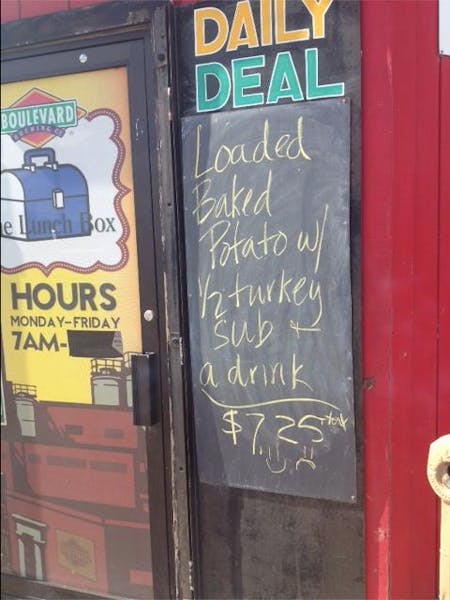 DAILY
DEAL
Loaded
Baked
Potato w/
1/2 turkey
sub +
a drink
$7.25 +tax
BOULEVARD
BREWING CO
e Lunch Box
HOURS
MONDAY-FRIDAY
7AM-